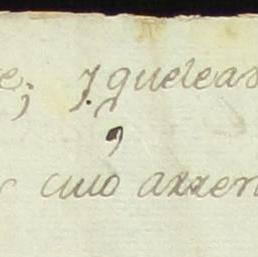 e; y queleas
cuio arren